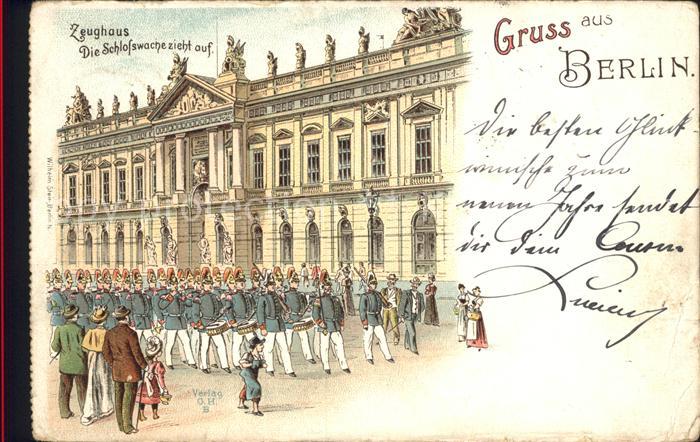 Zeughaus
Die Schloſswache zieht auf.
Gruss aus
BERLIN.
Die besten Glück
wünsche zum
neuen Jahre sendet
dir dein Cousin
Wilhelm Stein, Berlin N.
Verlag
O.H.
B